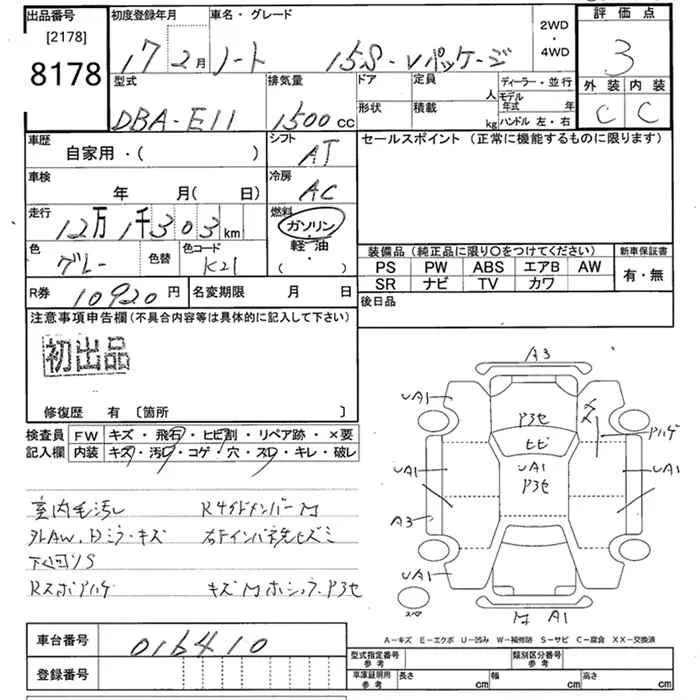 出品番号
[2178]
8178
初度登録年月
17 2月
車名・グレード
ノート 15S-Vパッケージ
2WD
・
4WD
評価点
3
外装 内装
C C
型式
DBA-E11
排気量
1500cc
ドア
・
形状
定員
人
積載
kg
ディーラー・並行
モデル年式 年
ハンドル 左・右
車歴
自家用・( )
シフト
AT
車検
年 月( 日)
冷房
AC
走行
12万1千303km
燃料
ガソリン
・
軽油
( )
色
グレー
色替
色コード
K21
セールスポイント (正常に機能するものに限ります)
装備品 (純正品に限り○をつけてください)
PS PW ABS エアB AW
SR ナビ TV カワ
新車保証書
有・無
R券 10920円
名変期限 月 日
後日品
注意事項申告欄(不具合内容等は具体的に記入して下さい)
初出品
修復歴 有 〔箇所 〕
検査員記入欄
FW キズ・飛石・ヒビ割・リペア跡・×要
内装 キズ・汚レ・コゲ・穴・スレ・キレ・破レ
室内毛汚レ
Rサイドメンバー M
下回リS
A3
UA1
P3セ
ヒビ
UA1
P3セ
キズ
Pハゲ
UA1
UA1
A3
UA1
スペア
M A1
A-キズ E-エクボ U-凹み W-補修跡 S-サビ C-腐食 XX-交換済
車台番号 016410
登録番号
型式指定番号
参考
類別区分番号
参考
車庫証明用
参考
長さ cm
幅 cm
高さ cm